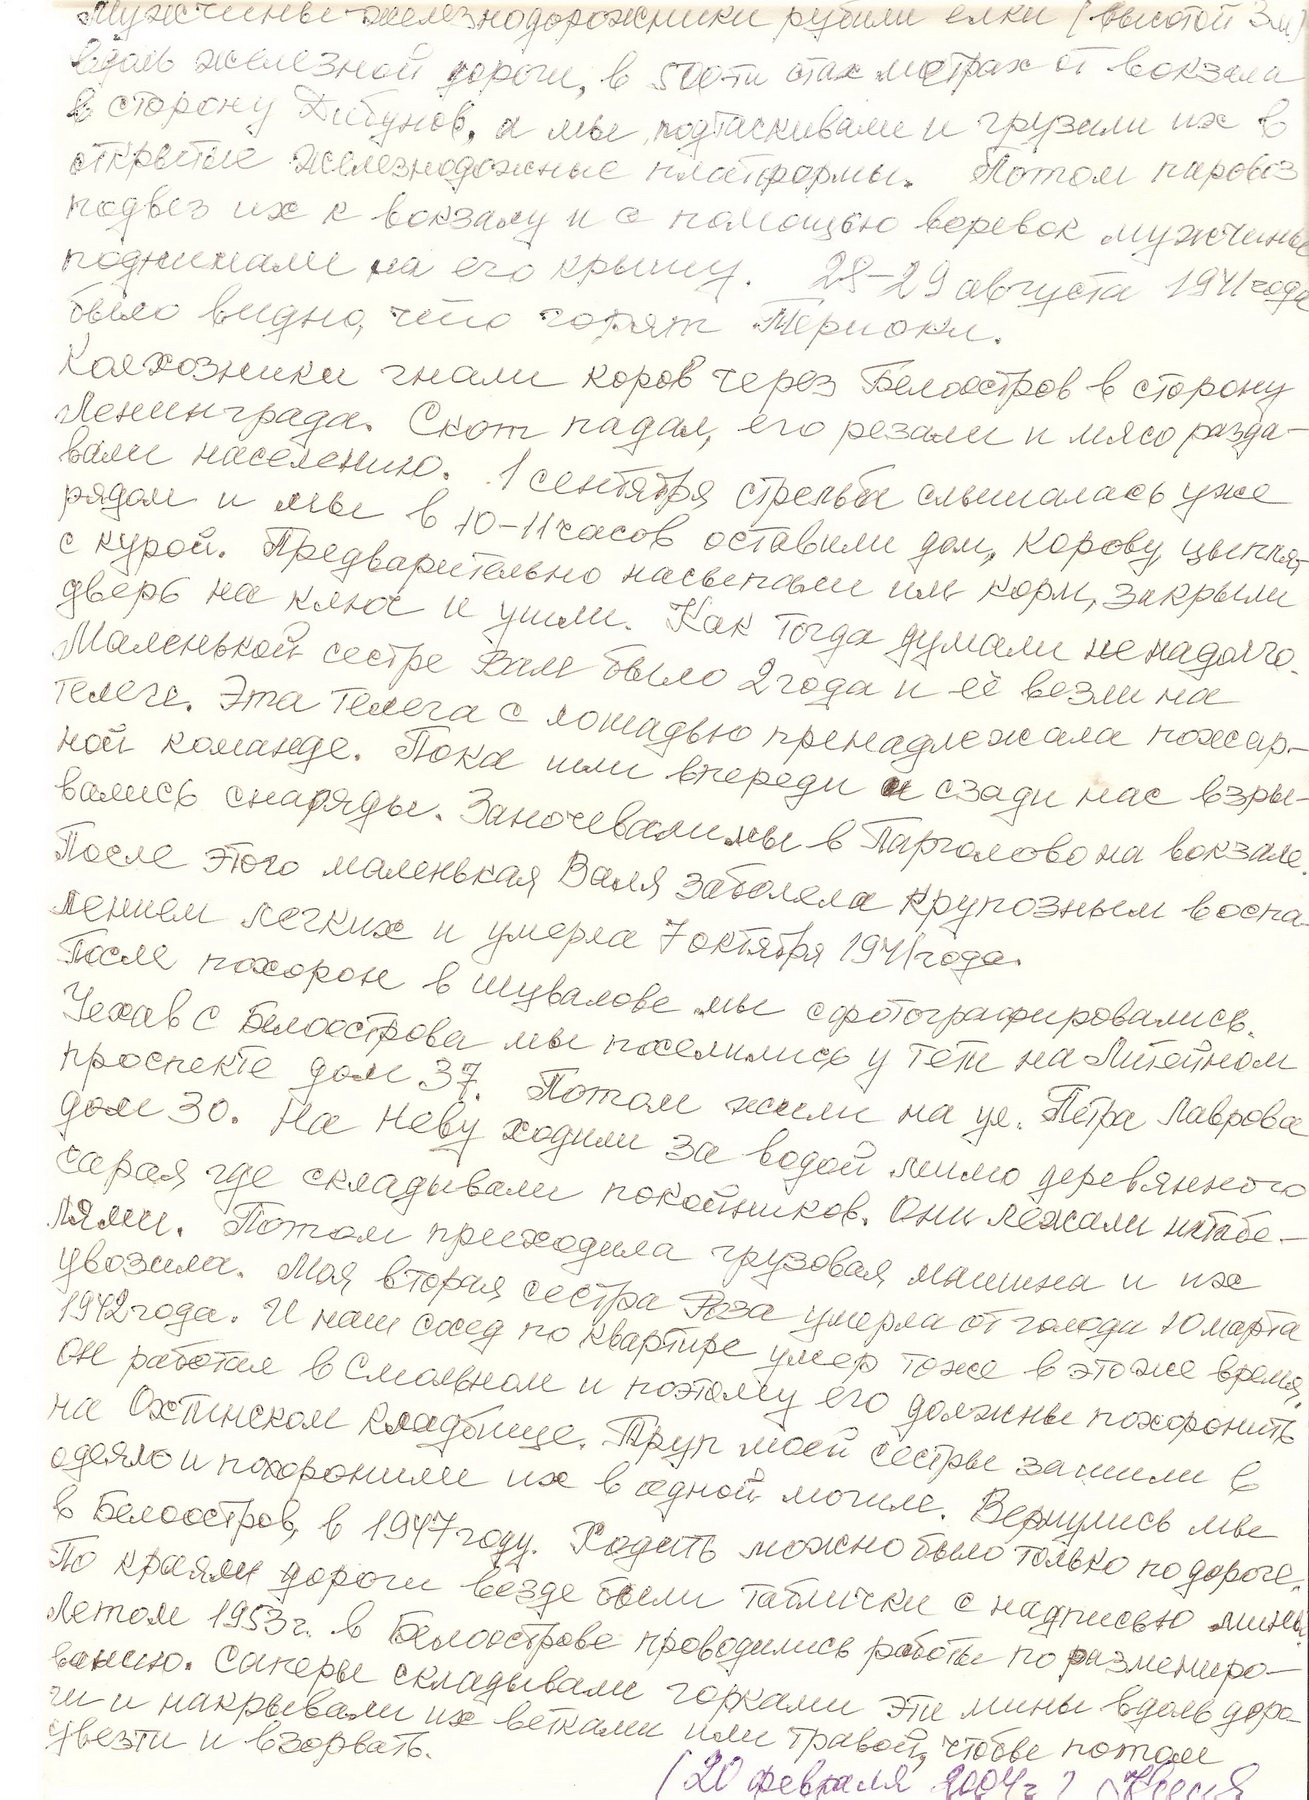 Мужчины-железнодорожники рубили елки (высотой 3м)
вдоль железной дороги, в 500ти стах метрах от вокзала
в сторону Дибунов, а мы подтаскивали и грузили их в
открытые железнодожные платформы. Потом паровоз
подвез их к вокзалу и с помощью веревок мужчины
поднимали на его крышу. 28-29 августа 1941 года
было видно, что горят Териоки.
Колхозники гнали коров через Белоостров в сторону
Ленинграда. Скот падал, его резали и мясо разда-
вали населению. 1 сентября стрельба слышалась уже
рядом и мы в 10-11 часов оставили дом, корову, цыплят
с курой. Предварительно насыпали им корм, закрыли
дверь на ключ и ушли. Как тогда думали ненадолго.
Маленькой сестре Вале было 2 года и её везли на
телеге. Эта телега с лошадью пренадлежала пожар-
ной команде. Пока шли впереди и сзади нас взры-
вались снаряды. Заночевали мы в Парголово на вокзале.
После этого маленькая Валя заболела крупозным воспа-
лением легких и умерла 7 октября 1941 года.
После похорон в Шувалове мы сфотографировались.
Уехав с Белоострова мы поселились у тети на Литейном
проспекте дом 37. Потом жили на ул. Петра Лаврова
дом 30. На Неву ходили за водой мимо деревянного
сарая где складывали покойников. Они лежали штабе-
лями. Потом приходила грузовая машина и их
увозила. Моя вторая сестра Роза умерла от голода 10 марта
1942 года. И наш сосед по квартире умер тоже в это же время,
он работал в Смольном и поэтому его должны похоронить
на Охтинском кладбище. Труп моей сестры зашили в
одеяло и похоронили их в одной могиле. Вернулись мы
в Белоостров, в 1947 году. Ходить можно было только по дороге.
По краям дороги везде были таблички с надписью мины.
Летом 1953 г. в Белоострове проводились работы по размениро-
ванию. Саперы складывали горками эти мины вдоль доро-
ги и накрывали их ветками или травой, чтобы потом
увезти и взорвать.
(20 февраля 2004 г.)